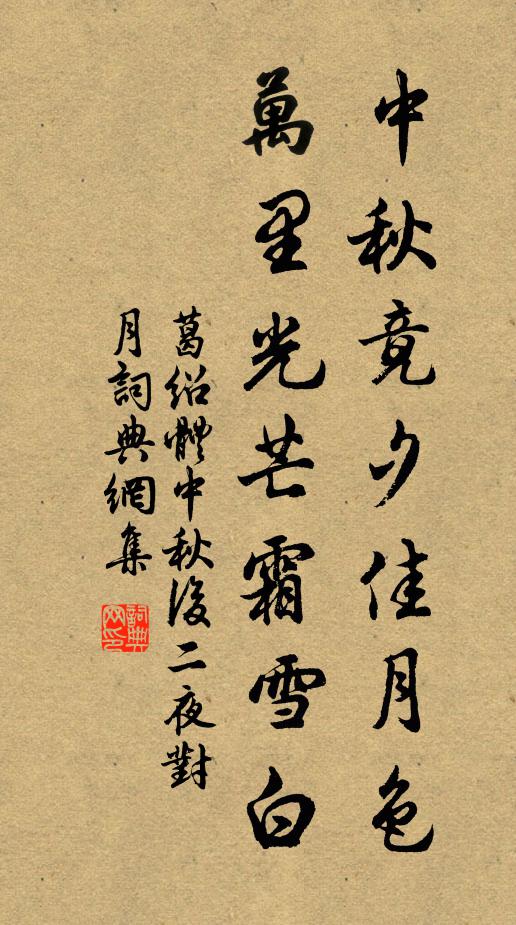 中秋竟夕佳月色
萬里光芒霜雪白
葛绍體中秋後二夜對
月詞典網集
詞典
网印